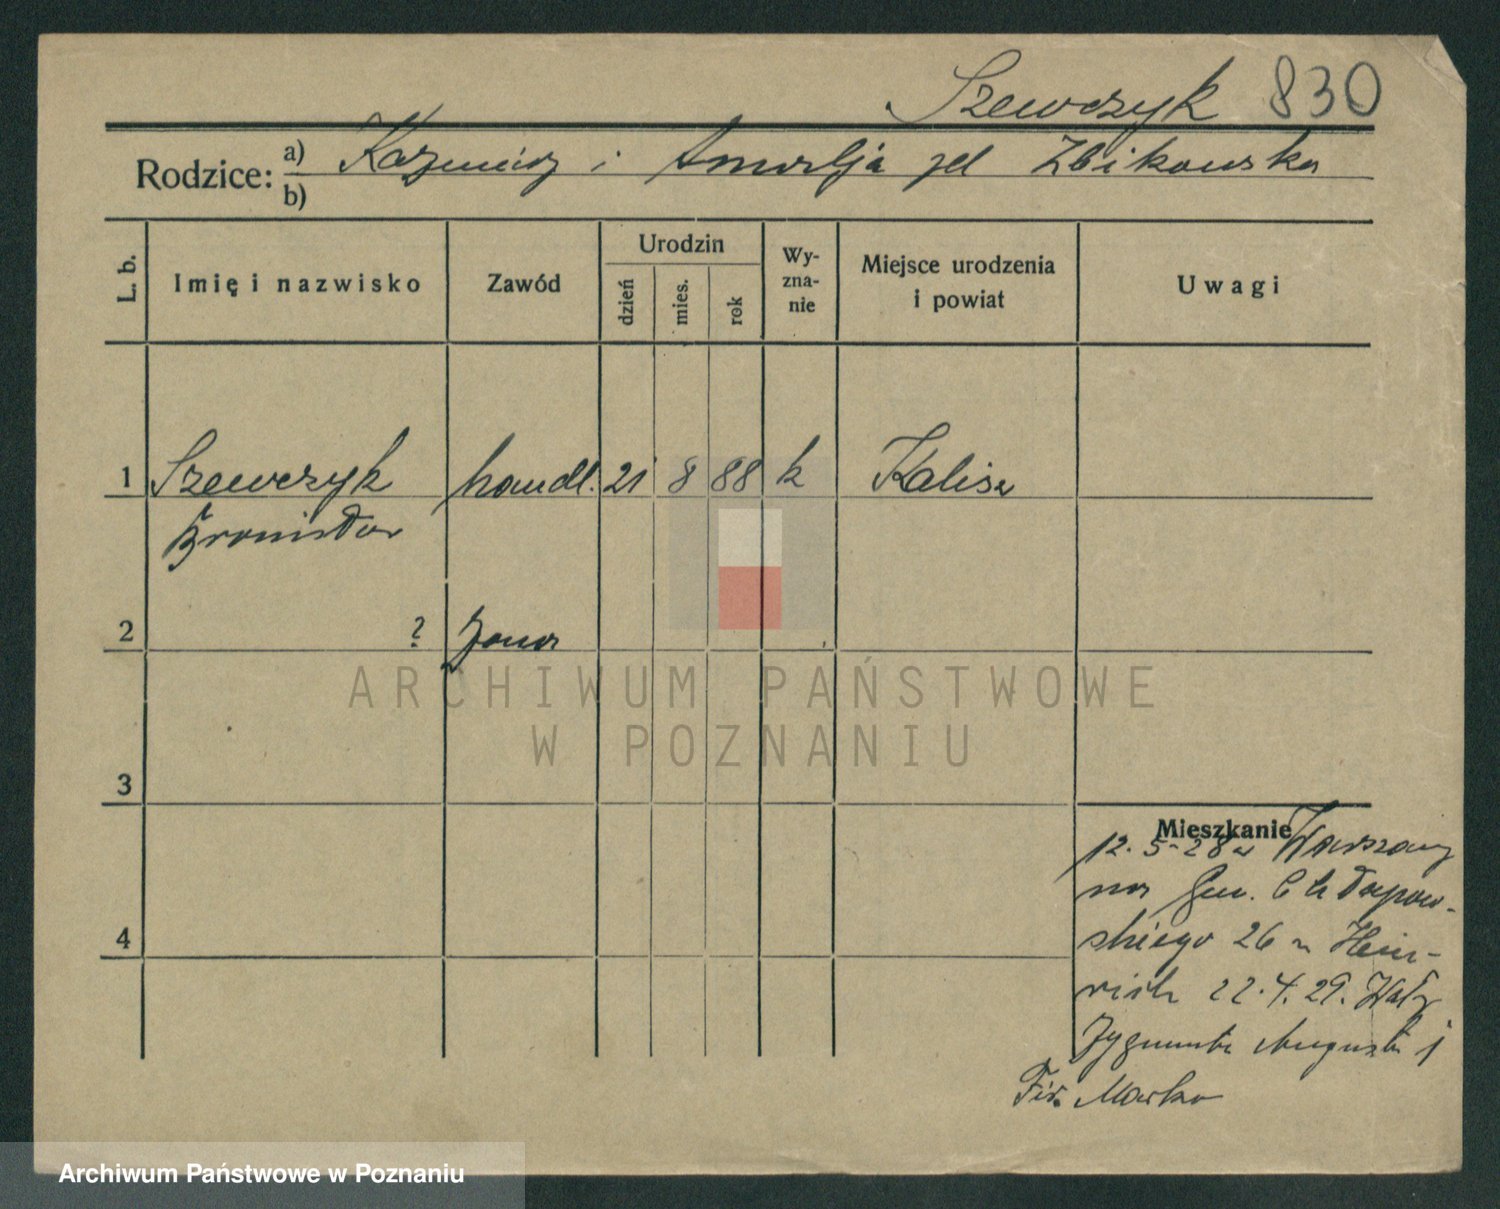 Szewczyk 830
Rodzice: a) Kazimierz i Amalja zd Zbikowska
b)
L. b. Imię i nazwisko Zawód Urodzin dzień mies. rok Wyznanie Miejsce urodzenia i powiat Uwagi
1 Szewczyk handl. 21 8 88 k Kalisz
Bronisław
2 ? żona
3
Mieszkanie
12.5-28 z Warszawy
na Gen. Chłapow-
4
skiego 26 u Hein-
rich 22.4.29. Wały
Zygmunta Augusta 1
Fir. Marko
ARCHIWUM PAŃSTWOWE
W POZNANIU
Archiwum Państwowe w Poznaniu